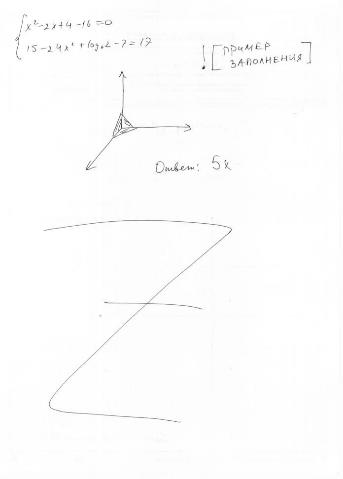 x²-2x+4-16=0
15-24x²+log₀2-7=17
! [ПРИМЕР
ЗАПОЛНЕНИЯ]
Ответ: 5x
Z